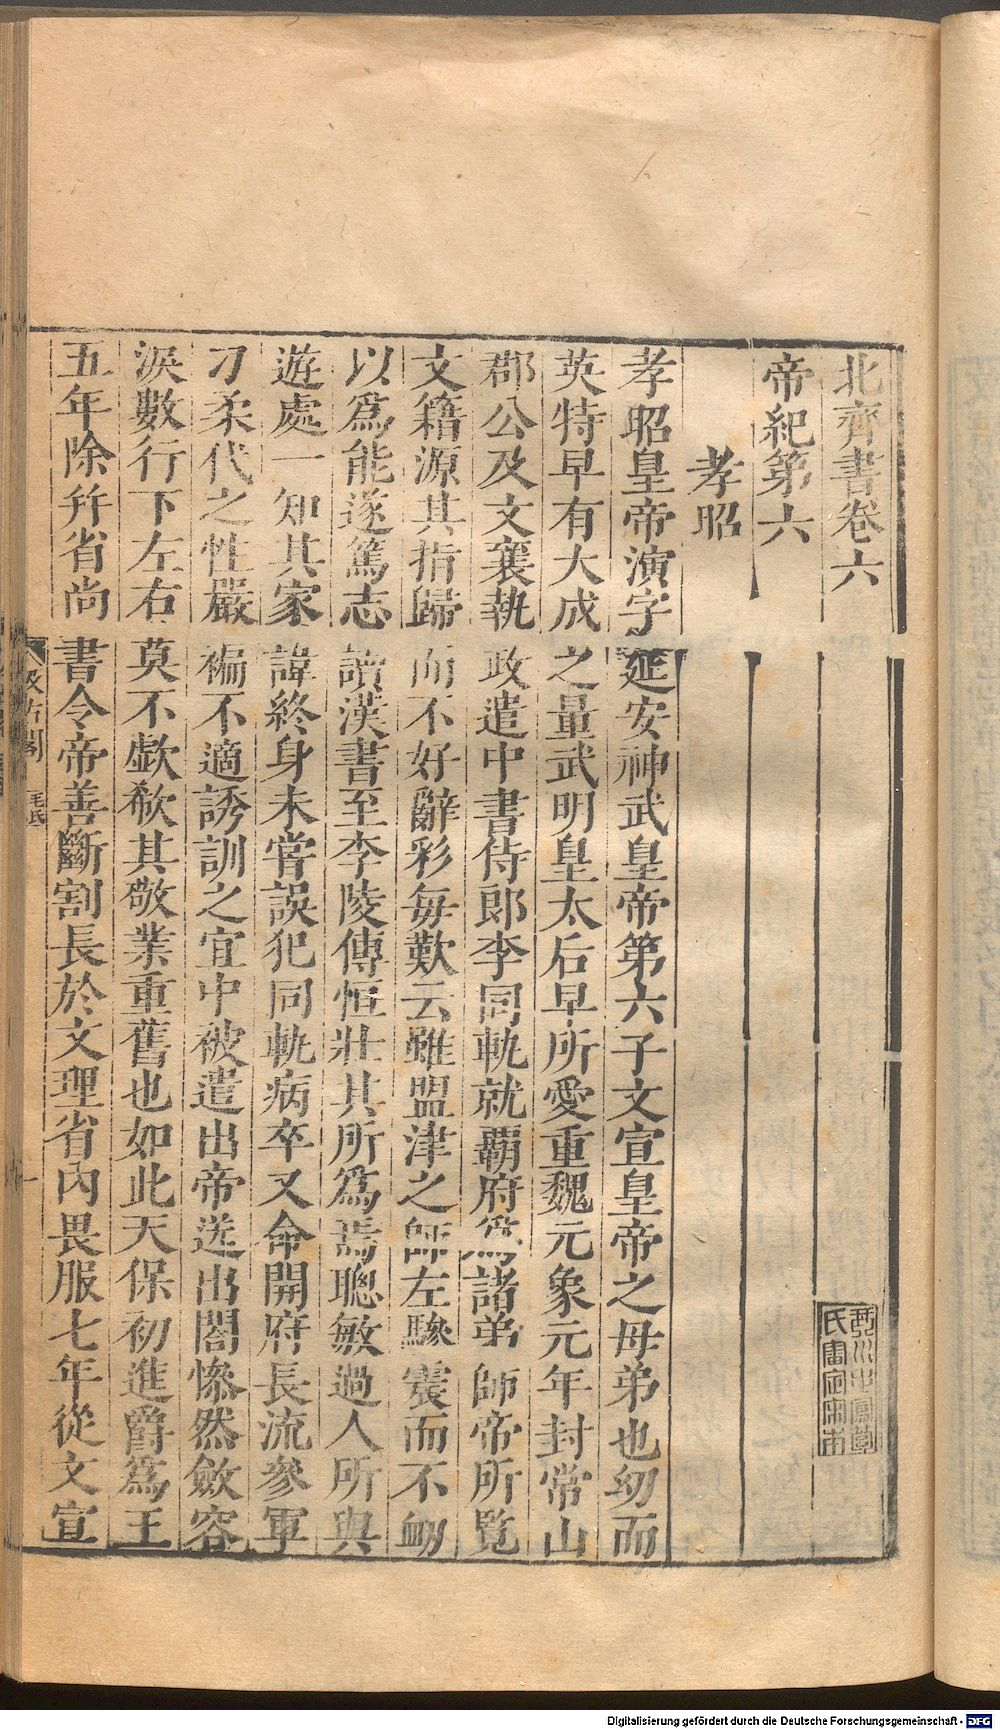 北齊書卷六
帝紀第六
孝昭
孝昭皇帝演字延安神武皇帝第六子文宣皇帝之母弟也幼而
英特早有大成之量武明皇太后早所愛重魏元象元年封常山
郡公及文襄執政遣中書侍郎李同軌就霸府爲諸弟師帝所覽
文籍源其指歸而不好辭彩每歎云雖盟津之師左驂震而不衂
以爲能遂篤志讀漢書至李陵傳恒壯其所爲焉聰敏過人所與
遊處一知其家諱終身未嘗誤犯同軌病卒又命開府長流參軍
刁柔代之性嚴褊不適誘訓之宜中被遣出帝送出閤慘然斂容
淚數行下左右莫不歔欷其敬業重舊也如此天保初進爵爲王
五年除幷省尚書令帝善斷割長於文理省內畏服七年從文宣
汲古閣
毛氏
Digitalisierung gefördert durch die Deutsche Forschungsgemeinschaft - DFG